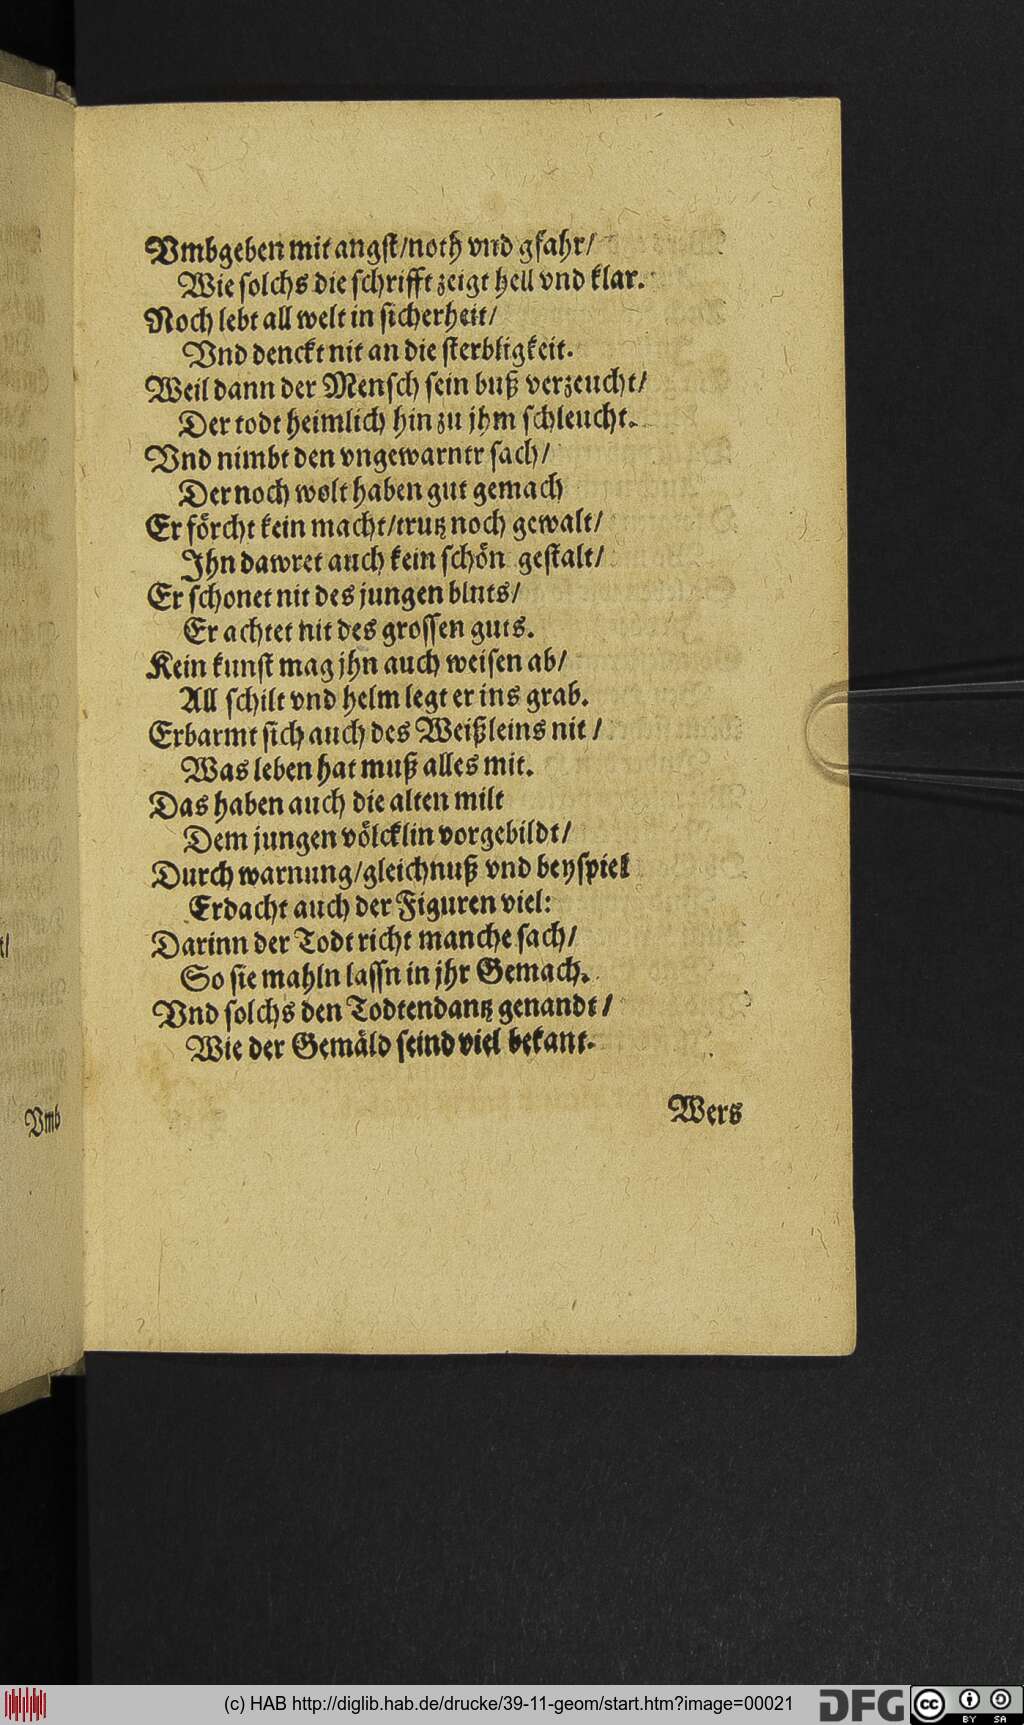 Vmbgeben mit angst/noth vnd gfahr/
Wie solchs die schrifft zeigt hell vnd klar.
Noch lebt all welt in sicherheit/
Vnd denckt nit an die sterbligkeit.
Weil dann der Mensch sein buß verzeucht/
Der todt heimlich hin zu jhm schleucht.
Vnd nimbt den vngewarntr sach/
Der noch wolt haben gut gemach
Er förcht kein macht/trutz noch gewalt/
Ihn dawret auch kein schön gestalt/
Er schonet nit des jungen bluts/
Er achtet nit des grossen guts.
Kein kunst mag jhn auch weisen ab/
All schilt vnd helm legt er ins grab.
Erbarmt sich auch des Weißleins nit/
Was leben hat muß alles mit.
Das haben auch die alten milt
Dem jungen völcklin vorgebildt/
Durch warnung/gleichnuß vnd beyspiel
Erdacht auch der Figuren viel:
Darinn der Todt richt manche sach/
So sie mahln lassn in jhr Gemach.
Vnd solchs den Todtendantz genandt/
Wie der Gemäld seind viel bekant.
Wers
t/
Vmb
(c) HAB http://diglib.hab.de/drucke/39-11-geom/start.htm?image=00021
DFG
cc
BY SA